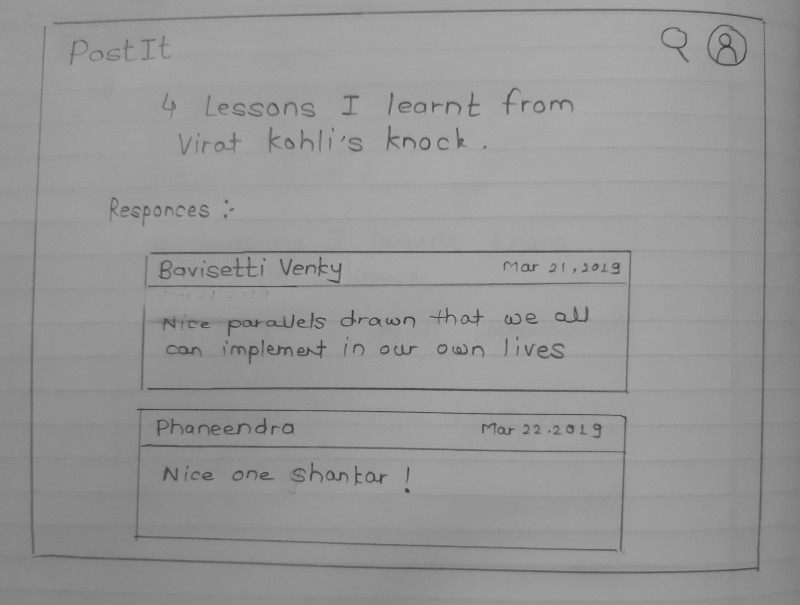 PostIt
4 Lessons I learnt from
Virat kohli's knock.
Responces :-
Bavisetti Venky Mar 21, 2019
Nice parallels drawn that we all
can implement in our own lives
Phaneendra Mar 22.2019
Nice one shankar !